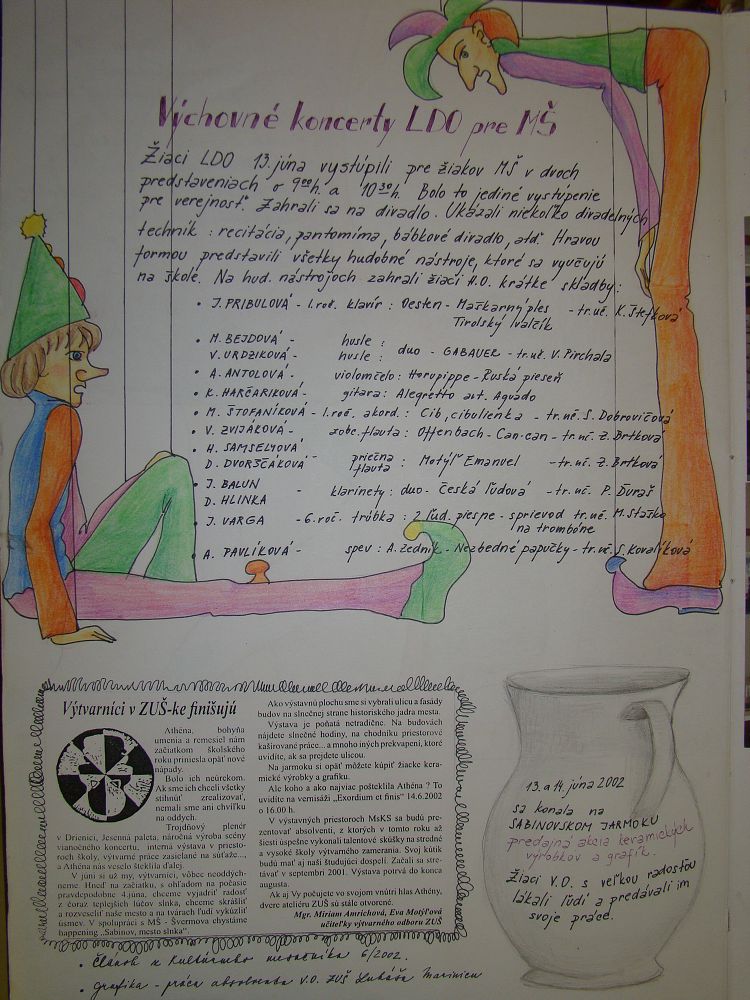 Výchovné koncerty LDO pre MŠ
Žiaci LDO 13. júna vystúpili pre žiakov MŠ v dvoch
predstaveniach o 9⁰⁰h. a 10³⁰h. Bolo to jediné vystúpenie
pre verejnosť. Zahrali sa na divadlo. Ukázali niekoľko divadelných
techník : recitácia, pantomíma, bábkové divadlo, atď. Hravou
formou predstavili všetky hudobné nástroje, ktoré sa vyučujú
na škole. Na hud. nástrojoch zahrali žiaci H.O. krátke skladby :
• J. PRIBULOVÁ - 1. roč. klavír : Oesten - Maškarný ples - tr. uč. K. Štefková
Tirolský valčík
• M. BEJDOVÁ - husle :
V. URDZIKOVÁ - husle : duo - GABAUER - tr. uč. V. Pirchala
• A. ANTOLOVÁ - violončelo : Hornpippe - Ruská pieseň
• K. HARČARIKOVÁ - gitara : Alegretto aut. Aguado
• M. ŠTOFANÍKOVÁ - 1. roč. akord. : Cib, cibulienka - tr. uč. S. Dobrovičová
• V. ZVIJÁKOVÁ - zobc. flauta : Offenbach - Can-can - tr. uč. Z. Brtková
• H. SAMSELYOVÁ
D. DVORŠČÁKOVÁ - priečna flauta : Motýľ Emanuel - tr. uč. Z. Brtková
• J. BALUN
D. HLINKA - klarinety : duo - Česká ľudová - tr. uč. P. Ďuraš
• J. VARGA - 6. roč. trúbka : 2 ľud. piesne - sprievod tr. uč. M. Staško
na trombóne
• A. PAVLÍKOVÁ - spev : A. Zedník - Nezbedné papučky - tr. uč. S. Kovalíková
Výtvarníci v ZUŠ-ke finišujú
Athéna, bohyňa
umenia a remesiel nám
začiatkom školského
roku priniesla opäť nové
nápady.
Bolo ich neúrekom.
Ak sme ich chceli všetky
stihnúť zrealizovať,
nemali sme ani chvíľku
na oddych.
Trojdňový plenér
v Drienici, Jesenná paleta, náročná výroba scény
vianočného koncertu, interná výstava v priesto-
roch školy, výtvarné práce zasielané na súťaže...,
a Athéna nás veselo šteklila ďalej.
V júni si už my, výtvarníci, vôbec neoddých-
neme. Hneď na začiatku, s ohľadom na počasie
pravdepodobne 4. júna, chceme vyjadriť radosť
z čoraz teplejších lúčov slnka, chceme skrášliť
a rozveseliť naše mesto a na tvárach ľudí vykúzliť
úsmev. V spolupráci s MŠ - Švermova chystáme
happening „Sabinov, mesto slnka".
Ako výstavnú plochu sme si vybrali ulicu a fasády
budov na slnečnej strane historického jadra mesta.
Výstava je poňatá netradične. Na budovách
nájdete slnečné hodiny, na chodníku priestorové
kašírované práce... a mnoho iných prekvapení, ktoré
uvidíte, ak sa prejdete ulicou.
Na jarmoku si opäť môžete kúpiť žiacke kera-
mické výrobky a grafiku.
Ale koho a ako najviac pošteklila Athéna ? To
uvidíte na vernisáži „Exordium et finis" 14.6.2002
o 16.00 h.
V výstavných priestoroch MsKS sa budú pre-
zentovať absolventi, z ktorých v tomto roku až
šiesti úspešne vykonali talentové skúšky na stredné
a vysoké školy výtvarného zamerania. Svoj kútik
budú mať aj naši študujúci dospelí. Začali sa stre-
távať v septembri 2001. Výstava potrvá do konca
augusta.
Ak aj Vy počujete vo svojom vnútri hlas Athény,
dvere ateliéru ZUŠ sú stále otvorené.
Mgr. Miriam Amrichová, Eva Motýľová
učiteľky výtvarného odboru ZUŠ
• Článok z Kultúrneho mesačníka 6/2002.
• Grafika - práca absolventa V.O. ZUŠ Lukáša
13. a 14. júna 2002
sa konala na
SABINOVSKOM JARMOKU
predajná akcia keramických
výrobkov a grafík.
Žiaci V.O. s veľkou radosťou
lákali ľudí a predávali im
svoje práce.